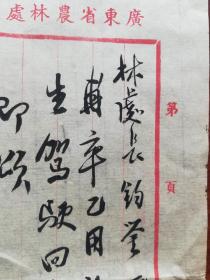 廣東省農林處
第 頁
林處長鈞鑒
再辛乙用
生駕駛回
即頌